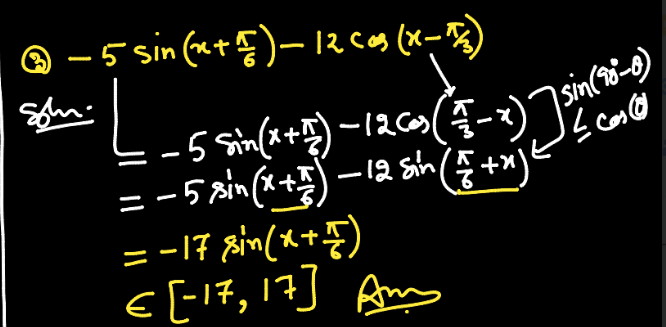 ③ -5 sin(x+π/6) - 12 cos(x-π/3)
Soln.
= -5 sin(x+π/6) - 12 cos(π/3 - x) sin(90°-θ)
= -5 sin(x+π/6) - 12 sin(π/6 + x) = cos θ
= -17 sin(x+π/6)
∈ [-17, 17] Ans